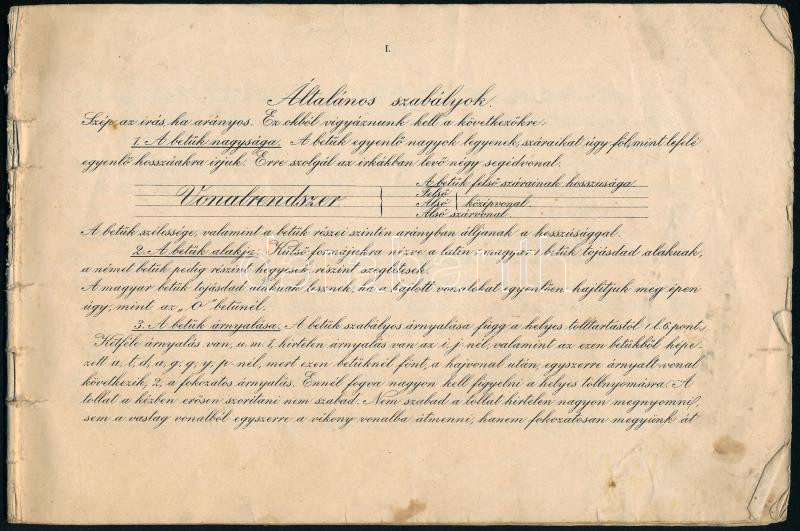 I.
Általános szabályok.
Szép az irás, ha arányos. Ez okból vigyáznunk kell a következőkre:
1. A betűk nagysága. A betűk egyenlő nagyok legyenek, száraikat úgy föl, mint lefelé
egyenlő hosszúakra irjuk. Erre szolgál az irkákban levő négy segédvonal.
A betűk felső szárainak hosszúsága.
Vonalrendszer { Felső
Alsó } középvonal.
Alsó szárvonal.
A betűk szélessége, valamint a betűk részei szintén arányban álljanak a hosszúsággal.
2. A betűk alakja. Külső formájukra nézve a latin (magyar) betűk tojásdad alakuak,
a német betűk pedig részint hegyesek, részint szegletesek.
A magyar betűk tojásdad alakuak lesznek, ha a hajlott vonalokat egyenlően hajlítjuk meg épen
úgy, mint az „O" betűnél.
3. A betűk árnyalása. A betűk szabályos árnyalása függ a helyes tolltartástól 1. l. 6. pont.
Kétféle árnyalás van, u. m. 1, hirtelen árnyalás van az i, j-nél, valamint az ezen betűkből képe-
zett u, t, d, a, g, q, y, p-nél, mert ezen betűknél fönt, a hajvonal után, egyszerre árnyalt vonal
következik, 2, a fokozatos árnyalás. Ennél fogva nagyon kell figyelni a helyes tollnyomásra. A
tollat a kézben erősen szorítani nem szabad. Nem szabad a tollat hirtelen nagyon megnyomni,
sem a vastag vonalból egyszerre a vékony vonalba átmenni, hanem fokozatosan megyünk át